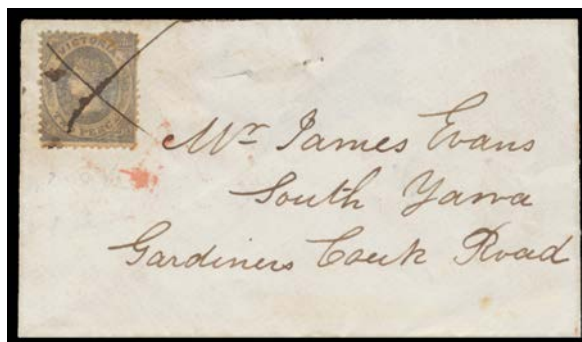 VICTORIA
TWO PENCE
Mr James Evans
South Yarra
Gardiners Creek Road